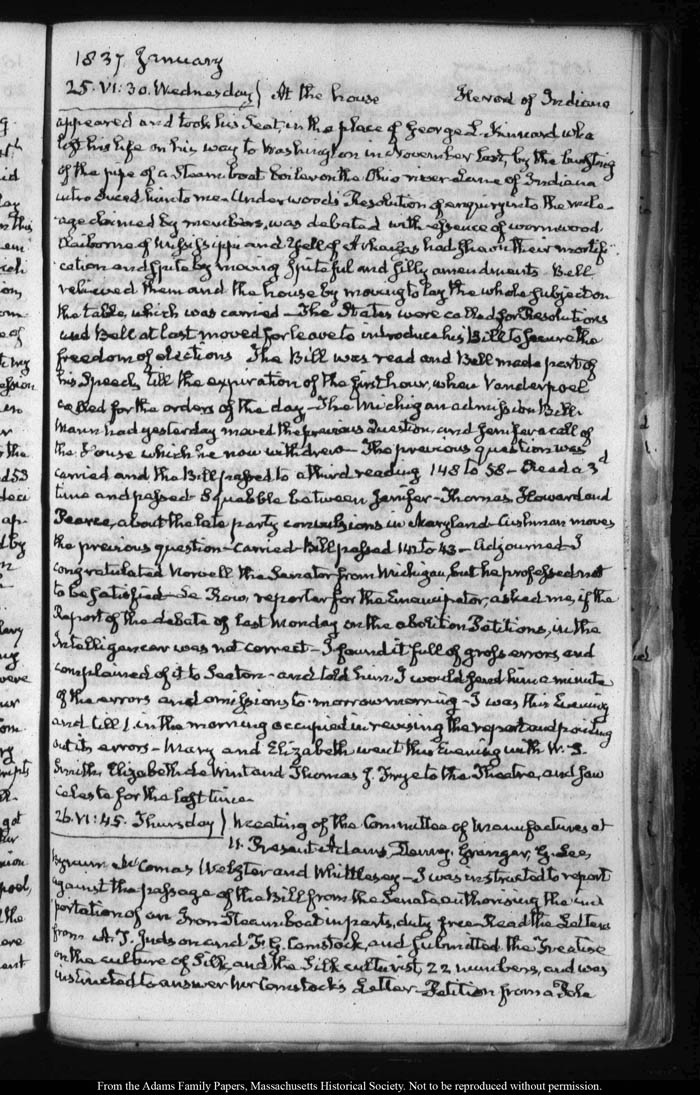 1837. January
25. VI:30. Wednesday } At the house Herod of Indiana
appeared and took his Seat, in the place of George L. Kinnard who
lost his life on his way to Washington in November last, by the bursting
of the pipe of a Steam boat boiler on the Ohio river Lane of Indiana
introduced him to me. Underwood's Resolution of enquiry into the mile-
age claimed by members, was debated with essence of wormwood
Claiborne of Mississippi and Yell of Arkansas had shown their mortifi-
cation and spite by moving spiteful and silly amendments. Bell
relieved them and the house by moving to lay the whole subject on
the table, which was carried — The States were called for Resolutions
and Bell at last moved for leave to introduce his Bill to secure the
freedom of elections The Bill was read and Bell made part of
his Speech, till the expiration of the first hour, when Vanderpoel
called for the orders of the day — The Michigan admission Bill.
Mann had yesterday moved the previous question, and Jenifer a call of
the House which he now withdrew — The previous question was
carried and the Bill passed to a third reading 148 to 58 — Read a 3d
time and passed. Squabble between Jenifer — Thomas, Howard and
Pearce, about the late party convulsions in Maryland — Cushman moves
the previous question — carried — Bill passed to 43 — Adjourned — I
congratulated Norvell the Senator from Michigan, but he professed not
to be satisfied — reporter for the Emancipator, asked me, if the
Report of the debate of last Monday on the abolition Petitions, in the
Intelligencer was not correct — I found it full of gross errors and
complained of it to Seaton — and told him I would send him a minute
of the errors and omissions to-morrow morning — I was this Evening
and till 1. in the morning occupied in revising the report and pointing
out its errors — Mary and Elizabeth went this Evening with W. S.
Smith, Elizabeth de Wint and Thomas J. Frye to the Theatre, and saw
Celeste for the last time.
26. VI:45. Thursday } Meeting of the Committee of Manufactures at
Present Adams, Denny, Granger, G. Lee,
McComas Webster and Whittlesey — I was instructed to report
against the passage of the Bill from the Senate, authorising the im-
portation of an Iron Steam boat in parts, duty free. Read the Letters
from A. T. Judson and F. G. Comstock, and submitted the Treatise
on the culture of Silk, and the Silk culturist, 22 numbers, and was
instructed to answer Mr Comstock's Letter — Petition from
From the Adams Family Papers, Massachusetts Historical Society. Not to be reproduced without permission.